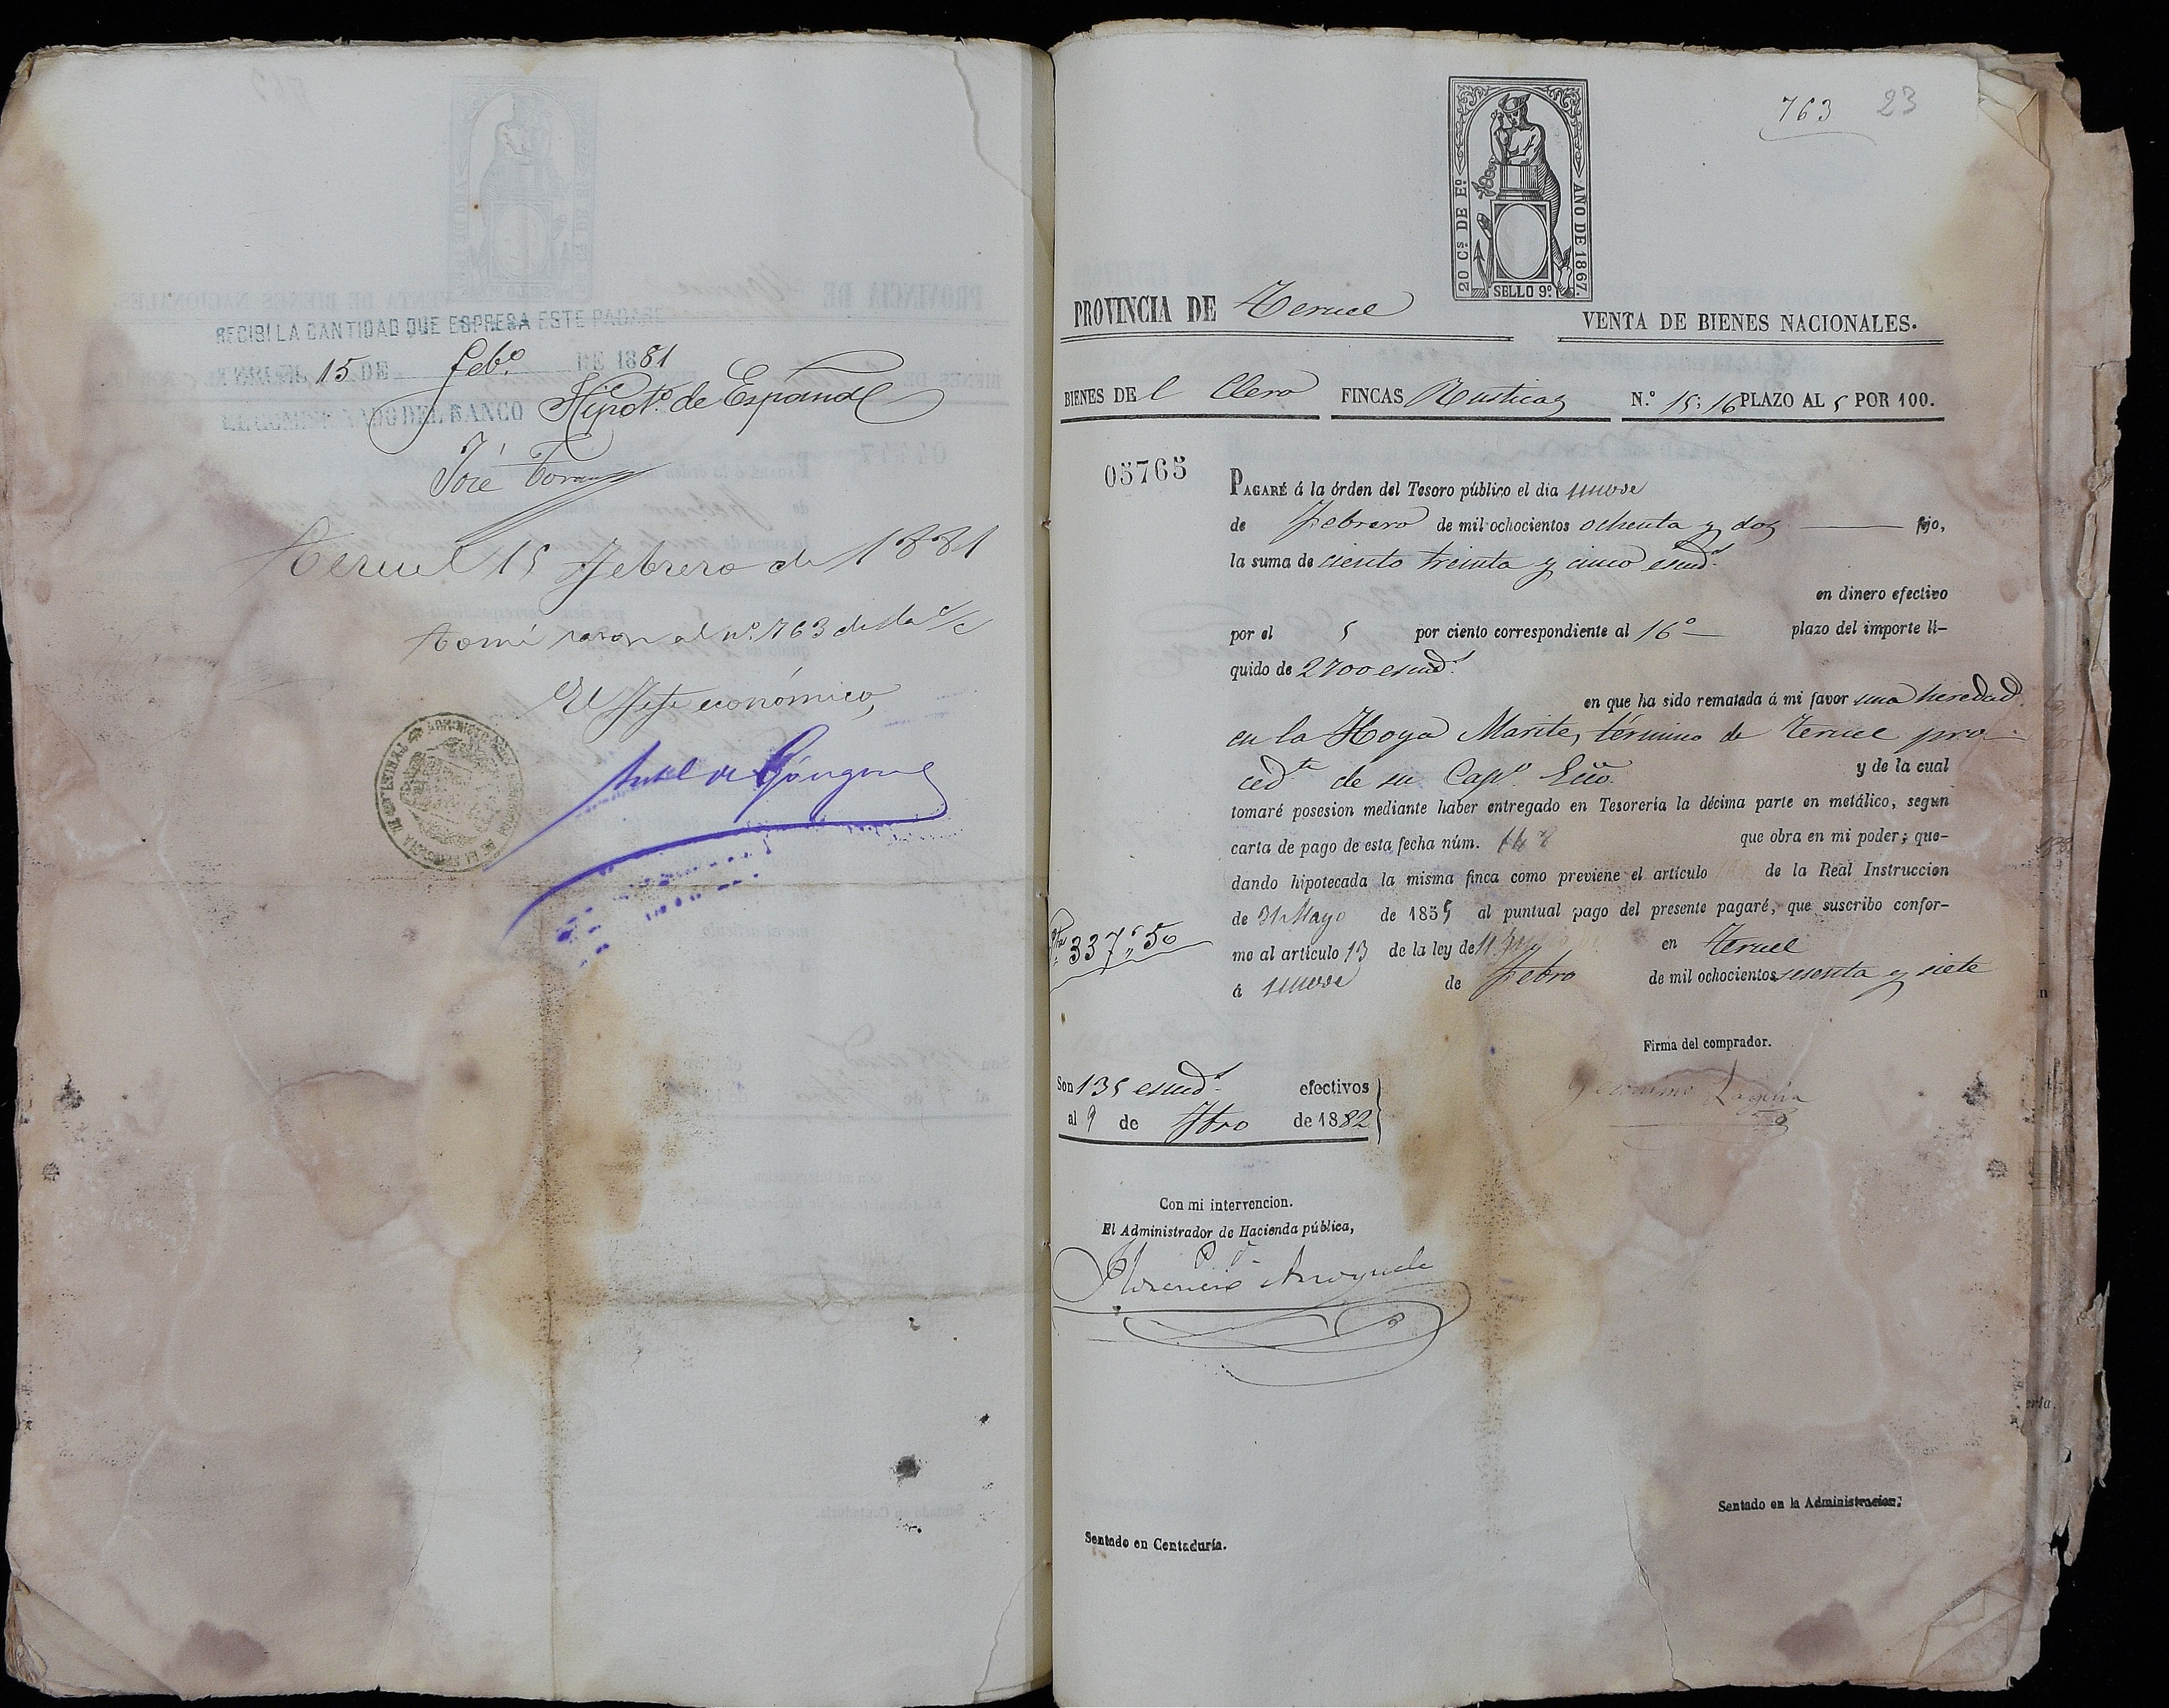 RECIBÍ LA CANTIDAD QUE ESPRESA ESTE PAGARÉ
TERUEL 15 DE Feb.º DE 1881
EL COMISIONADO DEL BANCO Hipot.º de España
José
Teruel 15 Febrero de 1881
Tomé razon al nº. 763 de
El Jefe económico,
763 23
20 Cs DE Eº. AÑO DE 1867.
SELLO 9º.
PROVINCIA DE Teruel
VENTA DE BIENES NACIONALES.
BIENES DE l Clero FINCAS Rusticas N.º 15; 16 PLAZO AL 5 POR 100.
05765
PAGARÉ á la órden del Tesoro público el dia nueve
de Febrero de mil ochocientos ochenta y dos fijo,
la suma de ciento treinta y cinco escud.s
en dinero efectivo
por el 5 por ciento correspondiente al 16º plazo del importe lí-
quido de 2700 escud.s
en que ha sido rematada á mi favor una heredad
en la Hoya Marite, término de Teruel pro-
ced.te de su Cap.º Ecco. y de la cual
tomaré posesion mediante haber entregado en Tesorería la décima parte en metálico, segun
carta de pago de esta fecha núm. que obra en mi poder; que-
dando hipotecada la misma finca como previene el artículo de la Real Instruccion
de 31 Mayo de 1855 al puntual pago del presente pagaré, que suscribo confor-
me al artículo 13 de la ley de 11 en Teruel
á nueve de Febro de mil ochocientos sesenta y siete
Ptas 337,,50
Firma del comprador.
Son 135 escud.s efectivos
al 9 de Fbro de 1882
Con mi intervencion.
El Administrador de Hacienda pública,
Florencio
Sentado en la Administracion.
Sentado en Contaduría.